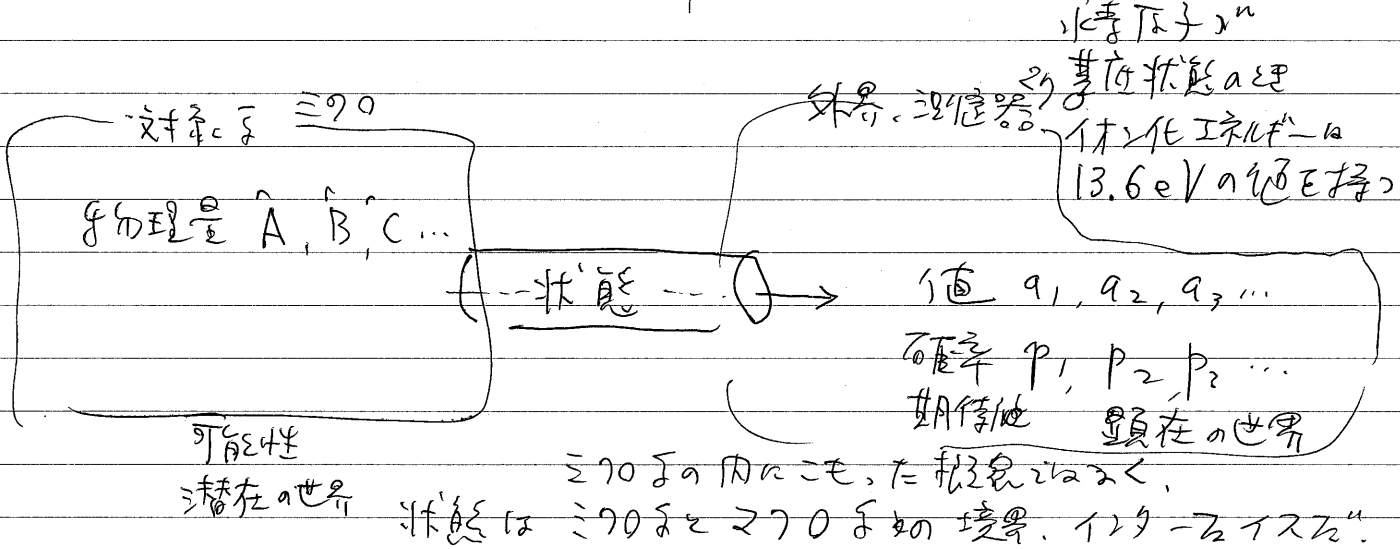 水素原子が
基底状態のとき
イオン化エネルギーは
13.6eVの値を持つ
対象系 ミクロ
外界、測定器 マクロ
物理量 Â, B̂, Ĉ …
状態
値 a₁, a₂, a₃ …
確率 p₁, p₂, p₃ …
期待値 顕在の世界
可能性
潜在の世界
ミクロ系の内にこもった概念ではなく、
状態はミクロ系とマクロ系の境界、インターフェイスだ。